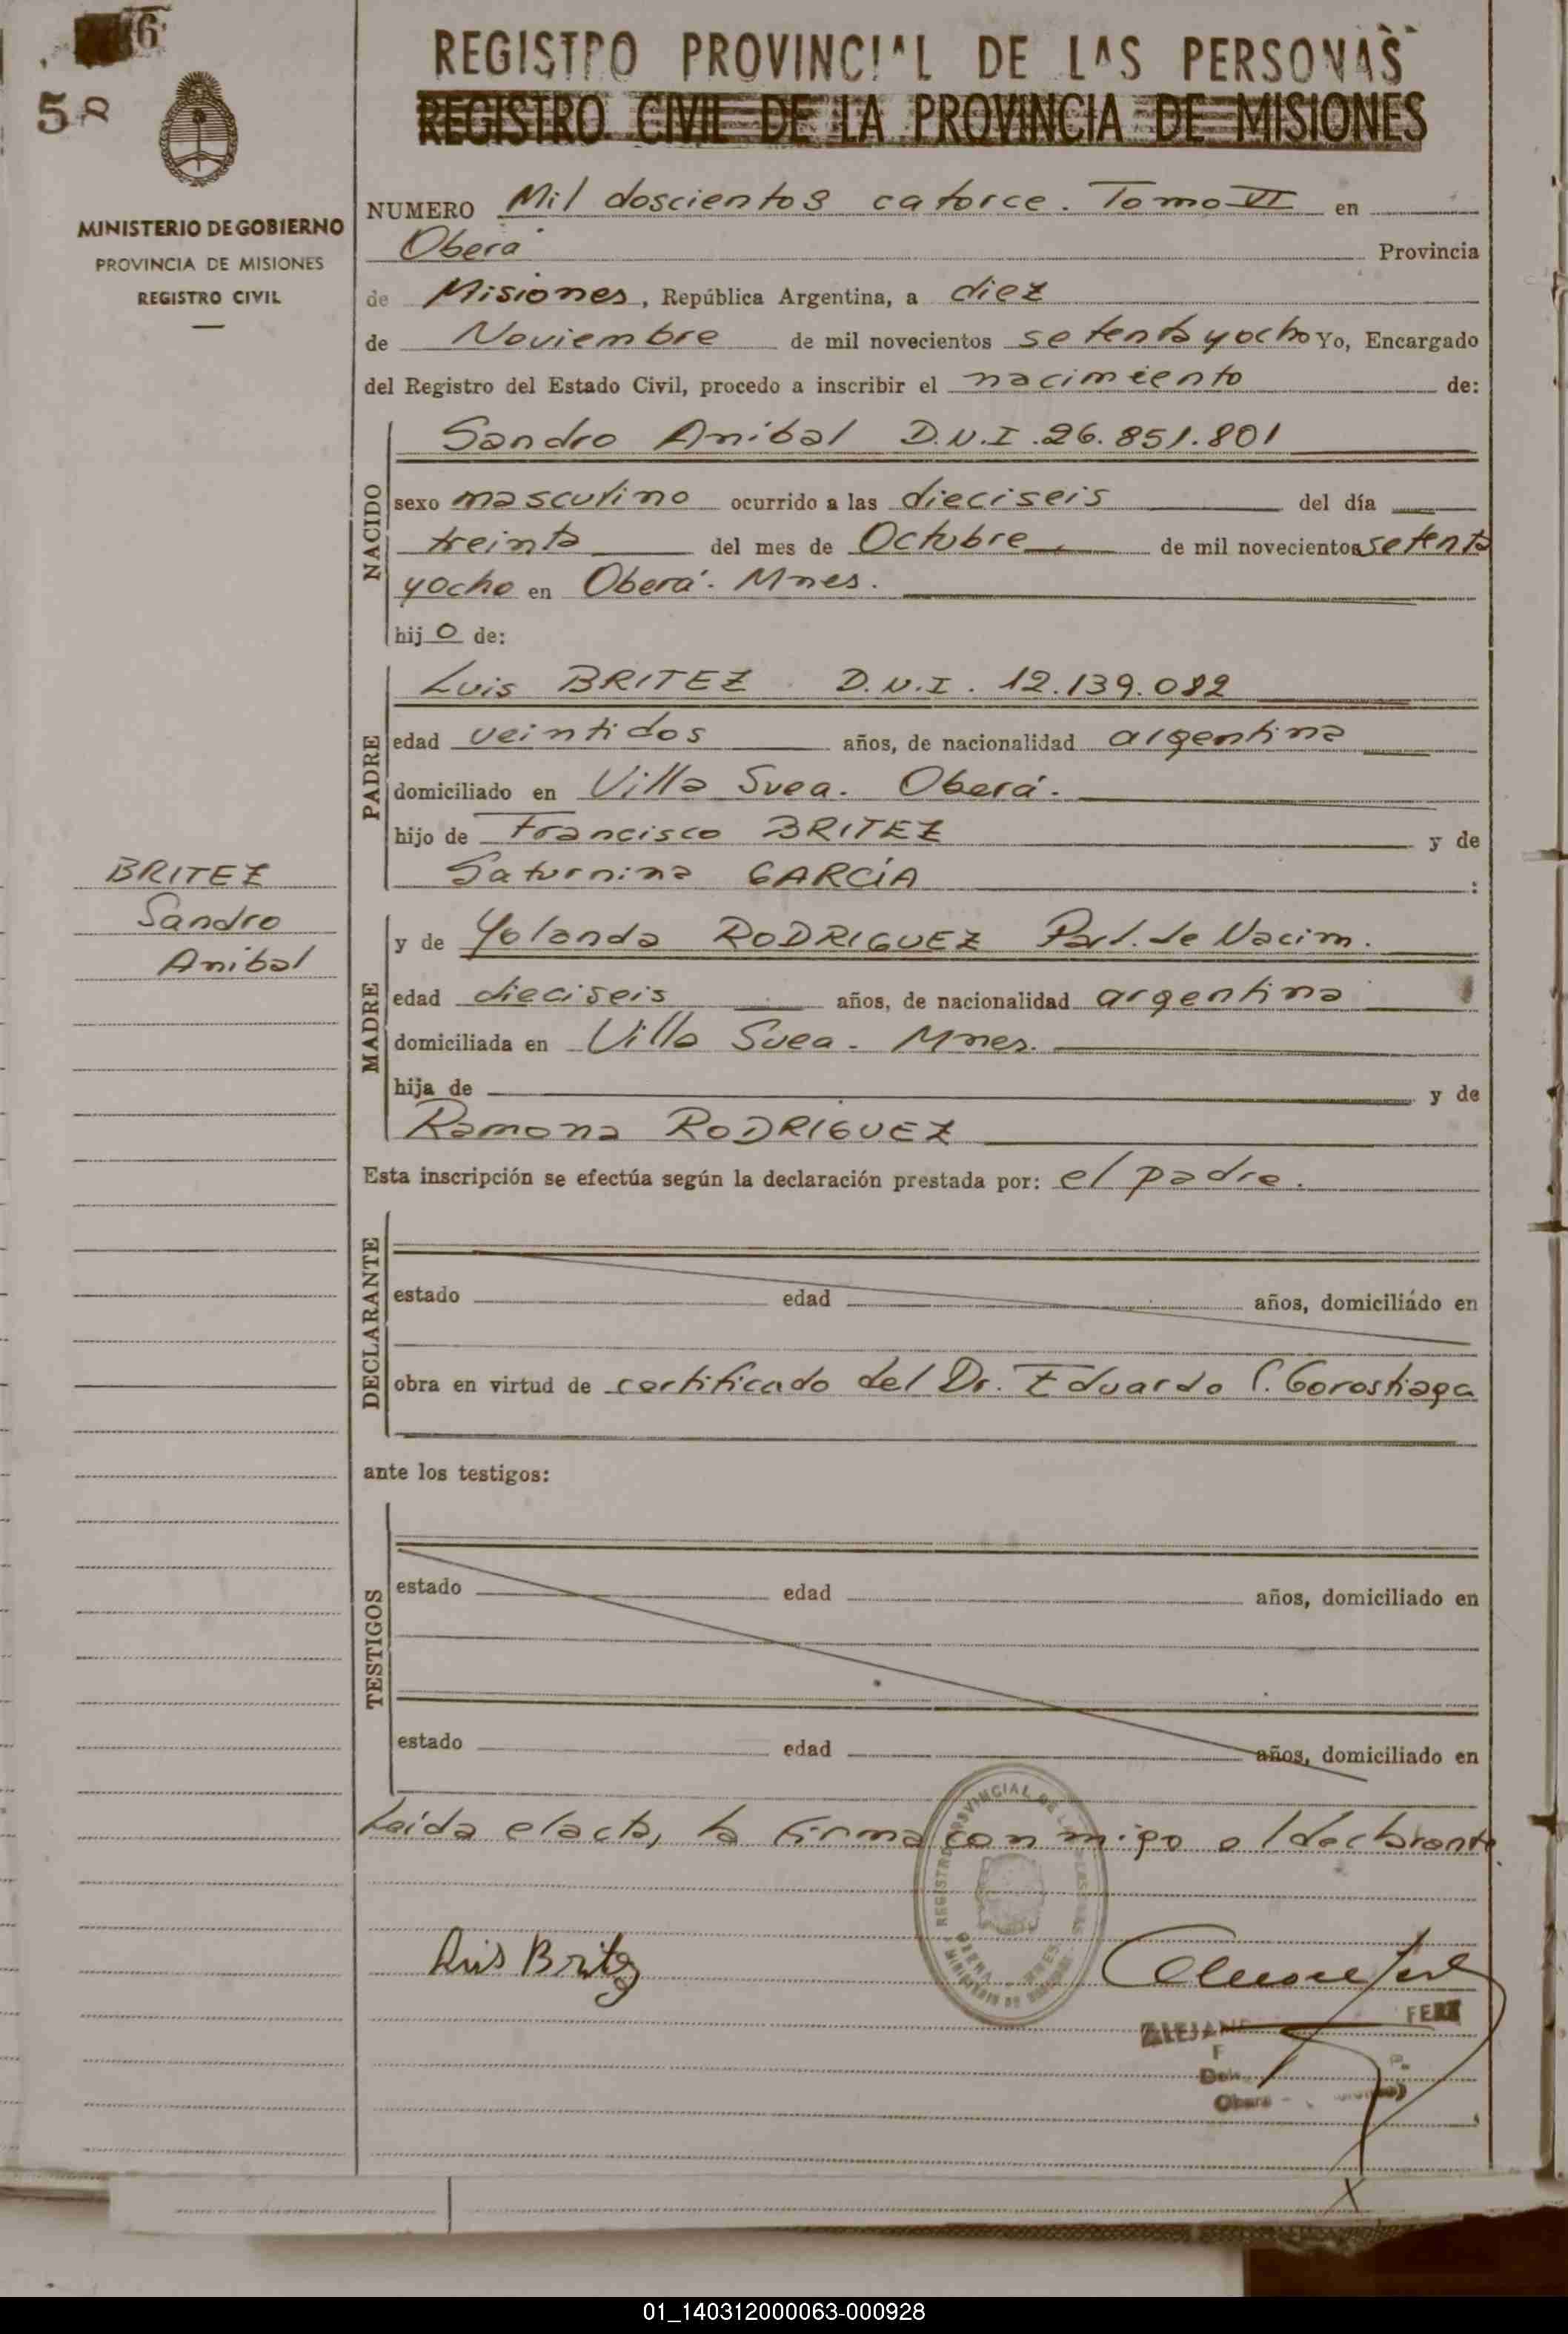 58
MINISTERIO DE GOBIERNO
PROVINCIA DE MISIONES
REGISTRO CIVIL
BRITEZ
Sandro
Anibal
REGISTRO PROVINCIAL DE LAS PERSONAS
REGISTRO CIVIL DE LA PROVINCIA DE MISIONES
NUMERO Mil doscientos catorce. Tomo VI en
Oberá Provincia
de Misiones, República Argentina, a diez
de Noviembre de mil novecientos setenta y ocho Yo, Encargado
del Registro del Estado Civil, procedo a inscribir el nacimiento de:
NACIDO
Sandro Anibal D.N.I. 26.851.801
sexo masculino ocurrido a las dieciseis del día
treinta del mes de Octubre de mil novecientos setenta
y ocho en Oberá. Mnes.
hijo de:
PADRE
Luis BRITEZ D.N.I. 12.139.082
edad veintidos años, de nacionalidad argentina
domiciliado en Villa Svea. Oberá.
hijo de Francisco BRITEZ y de
Saturnina GARCÍA :
MADRE
y de Yolanda RODRIGUEZ Part. de Nacim.
edad dieciseis años, de nacionalidad argentina
domiciliada en Villa Svea. Mnes.
hija de y de
Ramona RODRIGUEZ
Esta inscripción se efectúa según la declaración prestada por: el padre.
DECLARANTE
estado edad años, domiciliado en
obra en virtud de certificado del Dr. Eduardo C. Gorostiaga
ante los testigos:
TESTIGOS
estado edad años, domiciliado en
estado edad años, domiciliado en
Leída el acta, la firma conmigo el declarante.
Luis Britez
01_140312000063-000928